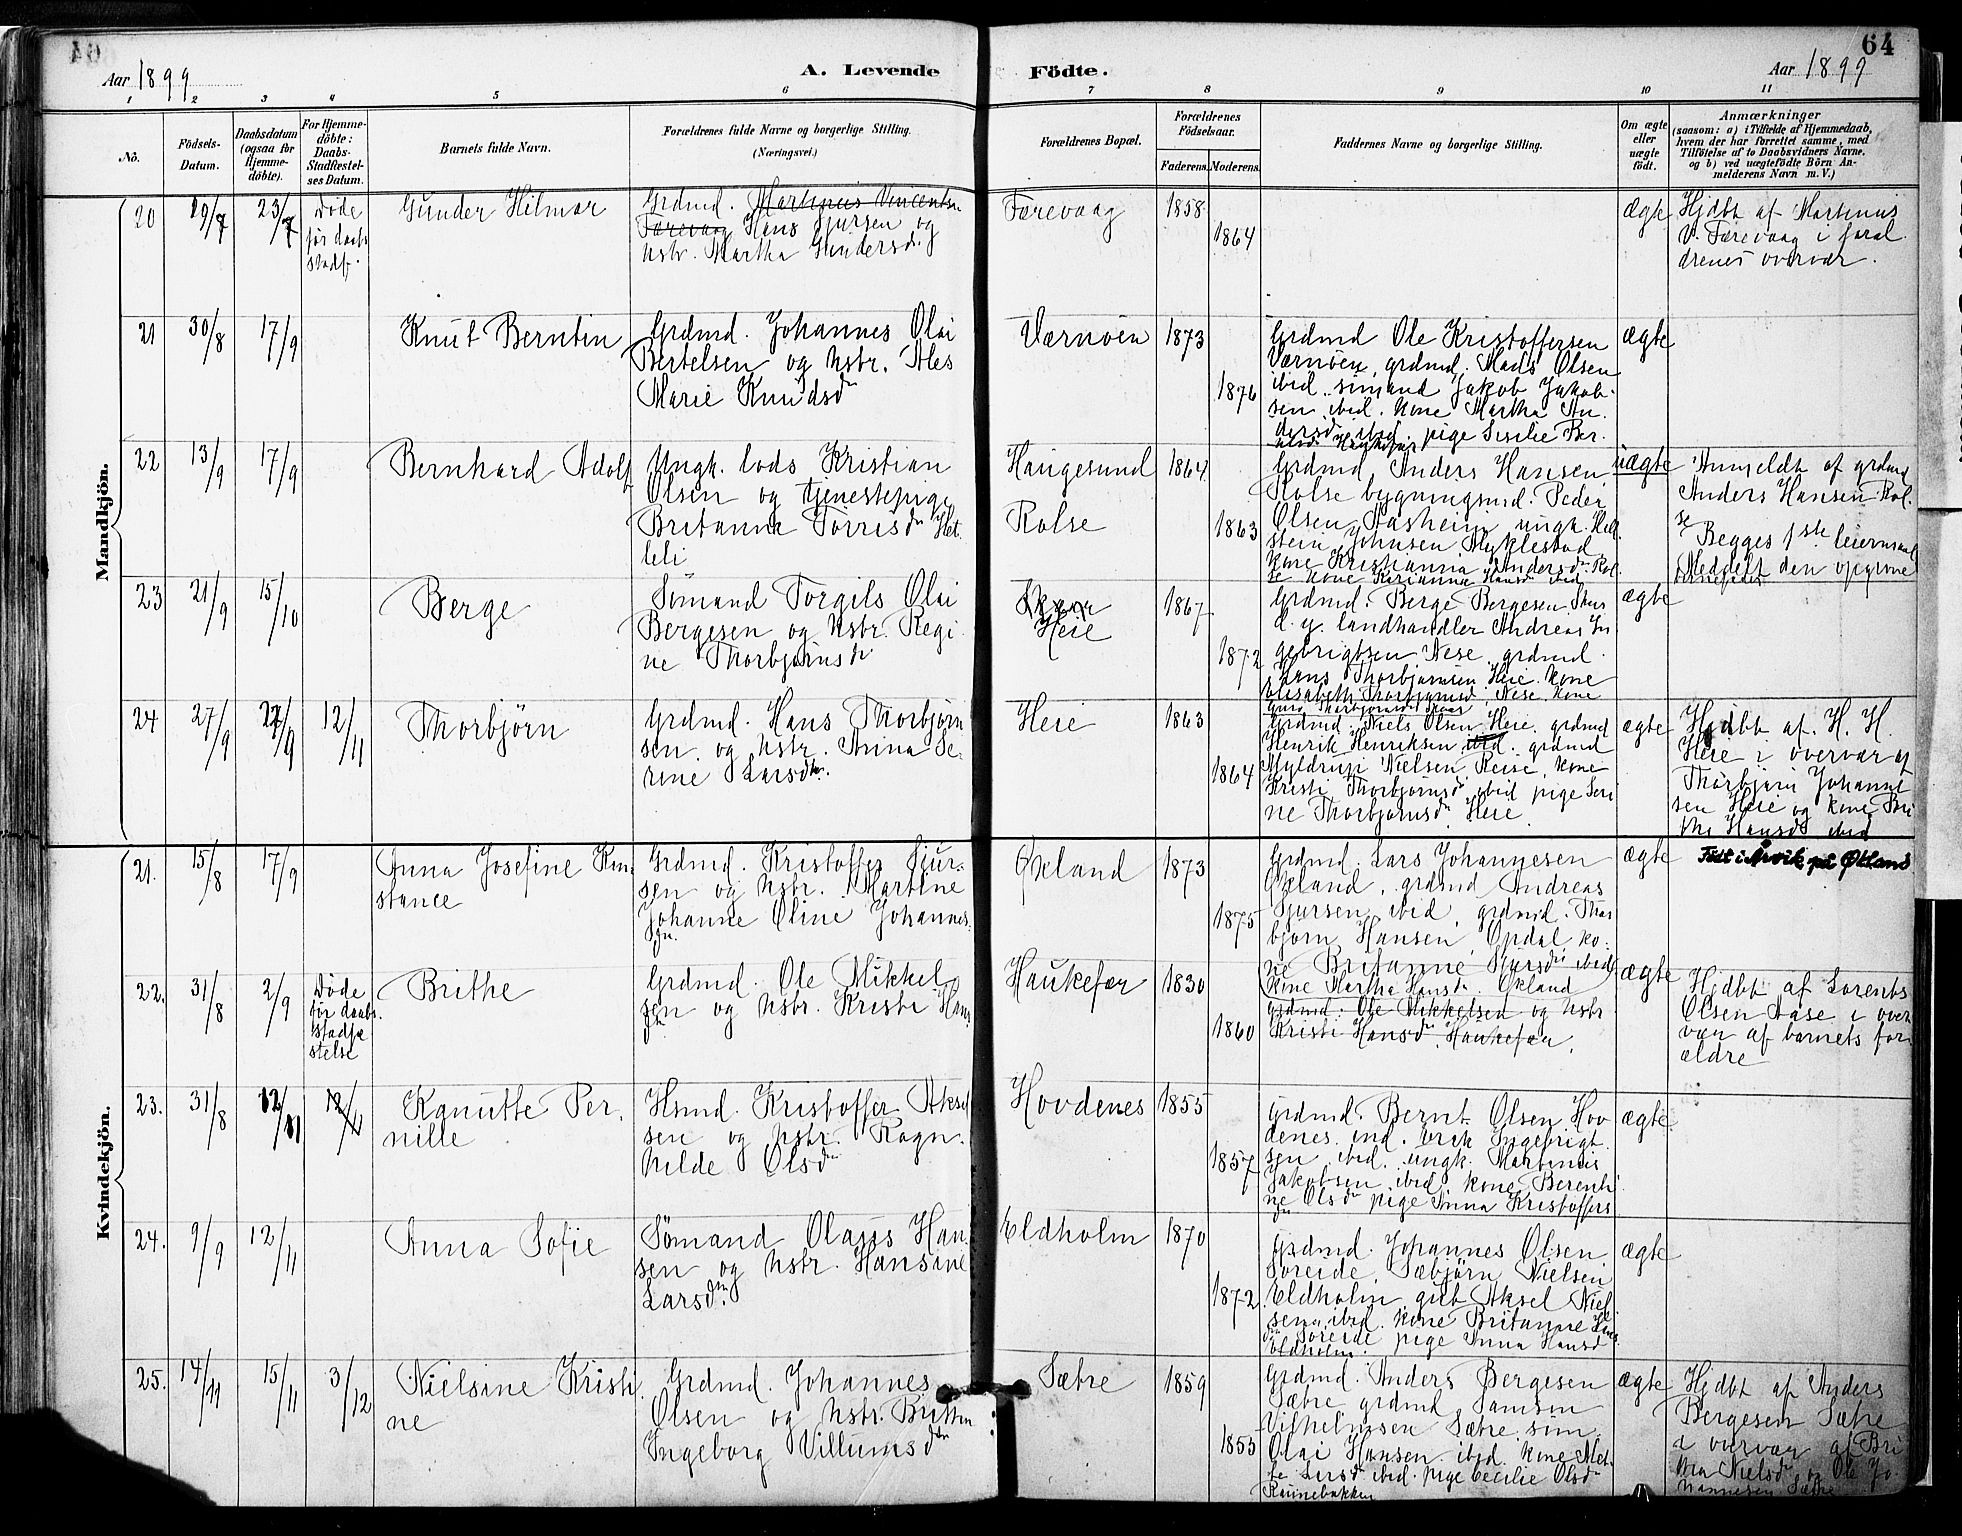 64
Aar 1899
A. Levende
Födte.
Aar 1899
1 2 3 4 5 6 7 8 9 10 11
No.
Födsels-
Datum.
Daabsdatum
(ogsaa for
Hjemme-
döbte).
For Hjemme-
döbte:
Daabs-
Stadfæstel-
ses Datum.
Barnets fulde Navn.
Forældrenes fulde Navne og borgerlige Stilling.
(Næringsvei.)
Forældrenes Bopæl.
Forældrenes
Födselsaar.
Faderens.
Moderens.
Faddernes Navne og borgerlige Stilling.
Om ægte
eller
uægte
födt.
Anmærkninger
(saasom: a) i Tilfælde af Hjemmedaab,
hvem der har forrettet samme, med
Tilföielse af to Daabsvidners Navne,
og b) ved uægtefödte Börn An-
melderens Navn m. V.)
Mandkjön.
20
19/7
23/7
Döde
før daabs
stadf.
Gunder Hilmar
Grdmd. Martinus Vincentsn
Førevaag Hans Sjursen og
hstr. Martha Gundersdr
Førevaag
1858
1864
ægte
Hjdbt af Martinus
V. Førevaag i foræl
drenes overvær.
21
30/8
17/9
Knut Berntin
Grdmd. Johannes Olai
Bertelsen og hstr. Ales
Marie Knudsdr
Værnöen
1873
1876
Grdmd Ole Kristoffersen
Værnöen, grdmd. Mads Olsen
ibid. sömand Jakob Jakob-
sen ibid. kone Martha An-
dersdr ibid. pige Sisilie Ber.
ægte
22
13/9
17/9
Bernhard Adolf
Ungk. lods Kristian
Olsen og tjenestepige
Britanna Torrisdr Het
leli
Haugesund
Rolse
1864
1863
Grdmd Anders Hansen
Rolse bygningsmd. Peder
Olsen Aasheim ungk. Hell
stein Johnsen Myklestad
kone Kristianna Andersdr Rol
se kone Karianna Hansdr ibid
uægte
Anmeldt af grdmd
Anders Hansen Rol-
se
Begges 1ste leiermaal
Meddelt den opgivne
barnefader
23
21/9
15/10
Berge
Sömand Torgils Olai
Bergesen og hstr. Regi
ne Thorbjörnsdr
Heie
1867
1872
Grdmd. Berge Bergesen
d. y. landhandler Andreas In
gebrigtsen Nese grdmd.
Hans Thorbjörnsen Heie kone
Elisabeth Thorbjørnsd Nese kone
ægte
24
27/9
27/9
12/11
Thorbjörn
Grdmd. Hans Thorbjørn
sen og hstr. Anna Se-
rine Larsdtr.
Heie
1863
1864
Grdmd. Niels Olsen Heie grdmd
Henrik Henriksen ibid. grdmd
Nielsen Reise, kone
Kristi Thorbjørnsdr ibid pige Seri
ne Thorbjørnsdr Heie
ægte
Hjdbt af H. H.
Heie i overvær af
Thorbjørn Johannes
sen Heie og kone Bri
the Hansdr ibid
Kvindekjön.
21.
15/8
17/9
Anna Josefine Kon-
stance
Grdmd. Kristoffer Sjur-
sen og hstr. Martine
Johanne Oline Johannes-
dr.
Økland
1873
1875
Grdmd. Lars Johannesen
Økland, grdmd Andreas
Sjursen ibid, grdmd. Thor
bjørn Hansen Opdal, ko-
ne Britanne Sjursdr ibid
kone Martha Hansdr. Økland
ægte
Födt i Arvik på Økland
22.
31/8
2/9
Döde
før daabs-
stadfæ
stelse
Brithe
Grdmd. Ole Mikkel
sen og hstr. Kristi Hans
dr
Haukefær
1830
1860
grdmd: Ole Mikkelsen og hstr
Kristi Hansdr. Haukefær.
ægte
Hjdbt af Lorents
Olsen Aase i over
vær af barnets for
ældre
23.
31/8
12/11
12/11
Kanutte Per-
nille
Hsmd. Kristoffer Aksel
sen og hstr. Ragn-
hilde Olsdr
Hovdenes
1855
1857
Grdmd. Bernt Olsen Hov
denes, ind. Erik Ingebrigt
sen ibid. ungk. Martinius
Jakobsen ibid kone Berenti
ne Olsdr pige Anna Kristoffers
dr
ægte
24.
9/9
12/11
Anna Sofie
Sömand Olaus Han
sen og hstr. Hansine
Larsdr.
Eldholm
1870
1872
Grdmd. Johannes Olsen
Søreide, Sæbjörn Nielsen
Eldholm gub Aksel Niel
sen ibid. kone Britanne
Søreide pige Anna Hansdr
Eldholm.
ægte
25.
14/11
15/11
3/12
Nielsine Kristi
ne
Grdmd. Johannes
Olsen og hstr. Britten
Ingeborg Villumsdr
Sætre
1859
1855
Grdmd. Anders Bergesen
Sætre grdmd Samson
Vilhelmsen Sætre söm.
Olai Hansen ibid. kone Met-
te Larsdr ibid. pige Cecilie Olsdr
Rannebakken
ægte
Hjdbt af Anders
Bergesen Sætre
i overvær af Bri
tha Nielsdr og Ole Jo-
hannesen Sætre